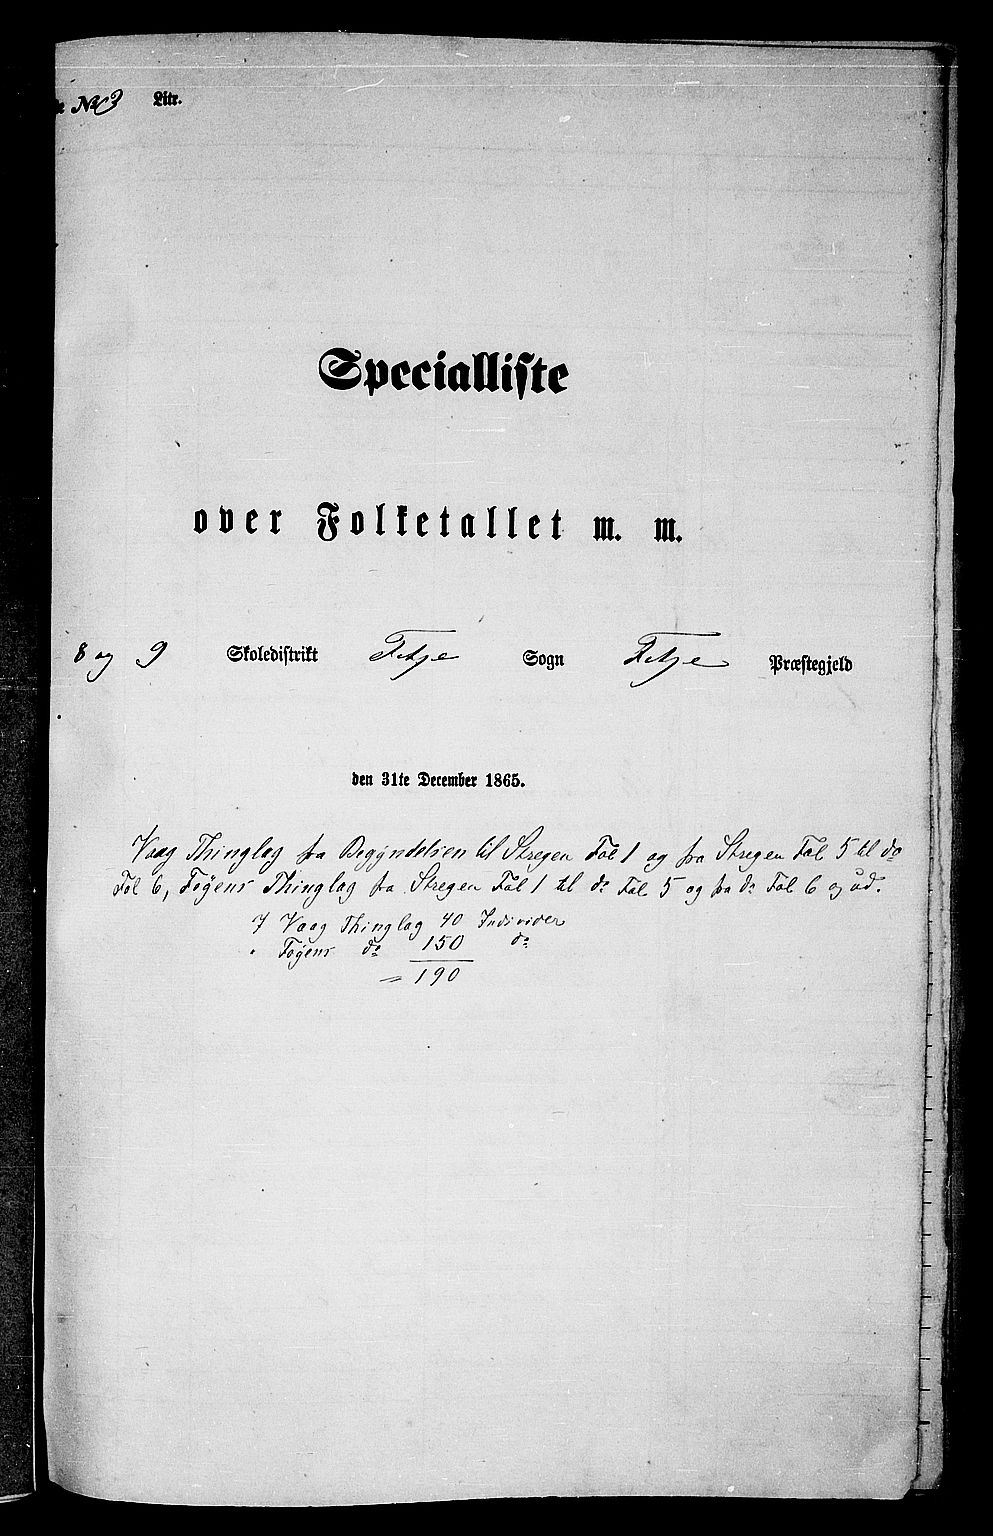 No 3 Litr.
Specialliste
over Folketallet m. m.
8 og 9 Skoledistrikt Fitje Sogn Fitje Præstegjeld
den 31te December 1865.
Vaag Thinglag fra Begyndelsen til Stregen Fol 1 og fra Stregen Fol 5 til do
Fol 6, Føyens Thinglag fra Stregen Fol 1 til do Fol 5 og fra do Fol 6 og ud.
I Vaag Thinglag 40 Individer
" Føyens do 150 do
= 190